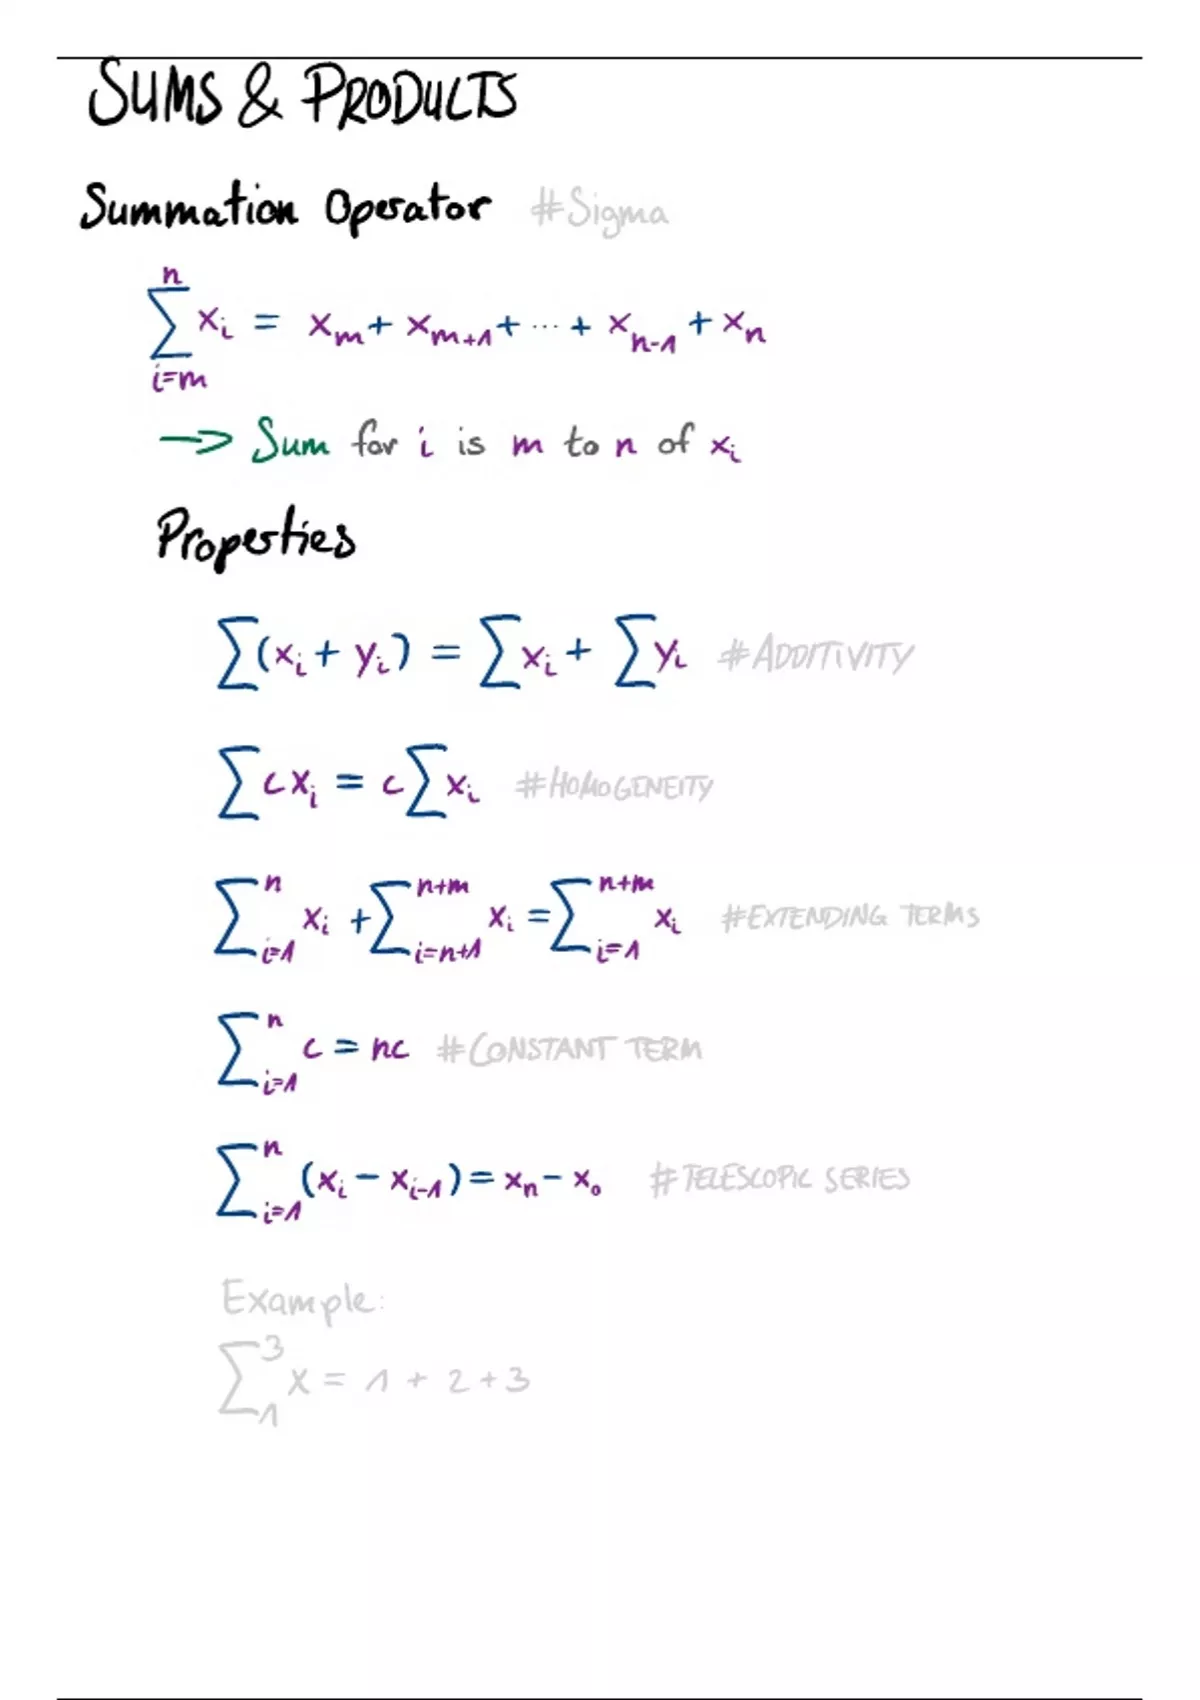 SUMS & PRODUCTS
Summation Operator #Sigma
n
∑ xᵢ = xₘ + xₘ₊₁ + ... + xₙ₋₁ + xₙ
i=m
→ Sum for i is m to n of xᵢ
Properties
∑(xᵢ + yᵢ) = ∑xᵢ + ∑yᵢ #ADDITIVITY
∑cxᵢ = c∑xᵢ #HOMOGENEITY
∑ⁿᵢ₌₁ xᵢ + ∑ⁿ⁺ᵐᵢ₌ₙ₊₁ xᵢ = ∑ⁿ⁺ᵐᵢ₌₁ xᵢ #EXTENDING TERMS
∑ⁿᵢ₌₁ c = nc #CONSTANT TERM
∑ⁿᵢ₌₁ (xᵢ − xᵢ₋₁) = xₙ − x₀ #TELESCOPIC SERIES
Example:
∑³₁ x = 1 + 2 + 3